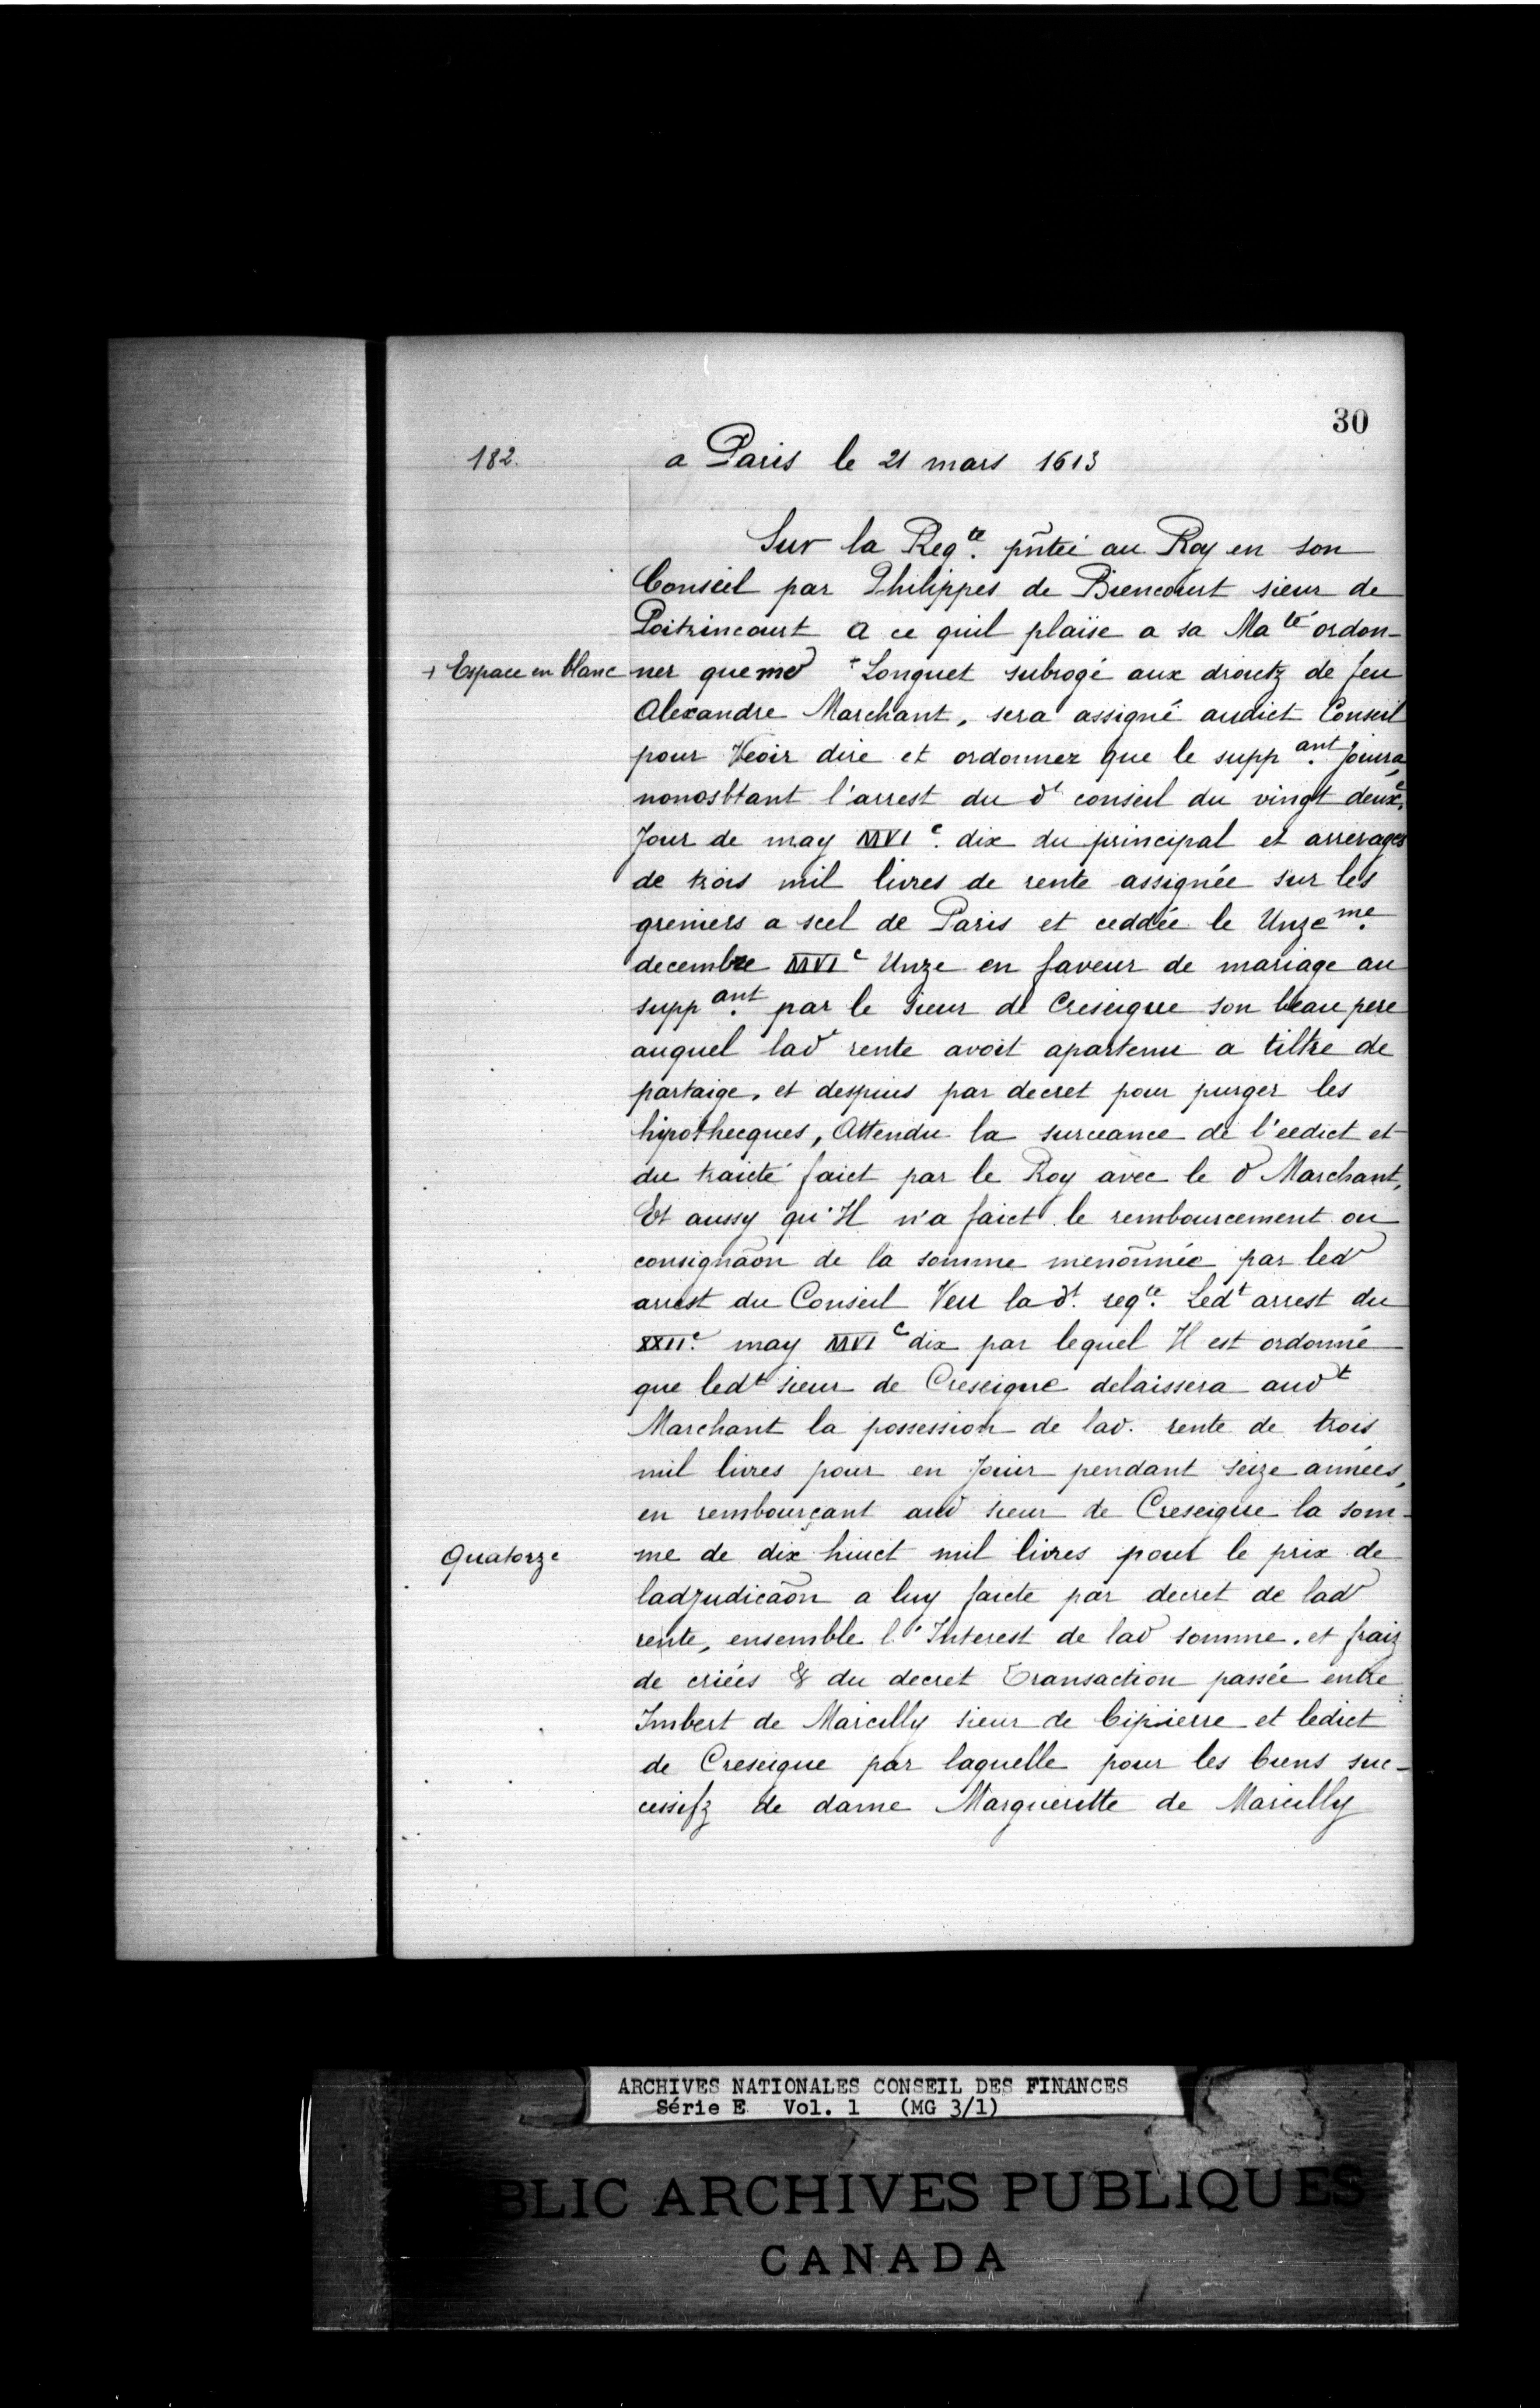 30
182.
a Paris le 21 mars 1613
Sur la Reqte. pñtéé au Roy en son
Conseil par Philippes de Biencourt sieur de
Poitrincourt a ce quil plaise a sa Maté ordon-
+ Espace en blanc
ner que md + Longuet subrogé aux droictz de feu
Alexandre Marchant, sera assigné audict Conseil
pour Veoir dire et ordonner que le suppant. Jouira,
nonosbtant l'arrest du dt conseil du vingt deuxe.
Jour de may MVIc. dix du principal et arrerages
de trois mil livres de rente assignée sur les
greniers a scel de Paris et ceddée le Unzeme.
decembre MVIc Unze en faveur de mariage au
suppant. par le Sieur de Creseigue son beau pere
auquel lad rente avoit apartenu a tiltre de
partaige, et despuis par decret pour purger les
hipothecques, Attendu la surceance de l'eedict et
du traicté faict par le Roy avec le d Marchant,
Et aussy qu'Il n'a faict le remboursement ou
consignãon de la somme menõnnée par led
arrest du Conseil Veu la dt. reqte. Ledt arrest du
XXIIe. may MVIc dix par lequel Il est ordonné
que ledt sieur de Creseigue delaissera audt
Marchant la possession de lad. rente de trois
mil livres pour en Jouir pendant seize années,
en rembourçant aud sieur de Creseigue la som-
Quatorze
me de dix huict mil livres pour le prix de
ladjudicãon a luy faicte par decret de lad
rente, ensemble l'Interest de lad somme, et fraiz
de criées & du decret Transaction passée entre
Imbert de Marcilly sieur de Cipierre et ledict
de Creseigue par laquelle pour les biens suc-
cessifz de dame Marguerite de Marcilly
ARCHIVES NATIONALES CONSEIL DES FINANCES
Série E Vol. 1 (MG 3/1)
BLIC ARCHIVES PUBLIQUES
CANADA